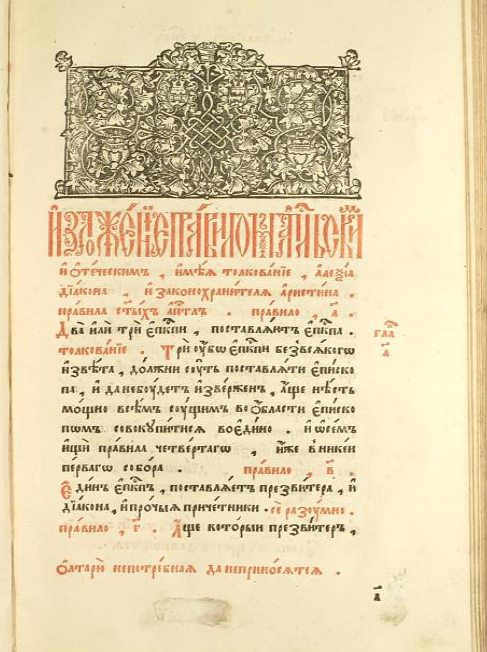 И҆зложе́нїе пра́виломъ а҆пⷭ҇льскимъ
и҆ ѻ҆те́ческимъ , и҆мѣ́ѧ толкова́нїе , а҆леѯі́а
дїа́кона , и҆ законохрани́телѧ а҆ристи́на .
пра́вила ст҃ы́хъ а҆пⷭ҇лъ . пра́вило , а҃ .
Два̀ и҆лѝ трѝ є҆пⷭ҇кпи , поставлѧ́ютъ є҆пⷭ҇кпа .
толкова́нїе . Трѝ оу҆́бѡ є҆пⷭ҇кпи безвсѧ́кагѡ
и҆звѣ́та , до́лжни соу́ть поставлѧ́ти є҆пи́ско
па , и҆ да небоу́детъ и҆зве́рженъ , а҆́ще нѣ́сть
мо́щно всѣ́мъ соу́щимъ во ѻ҆́бласти є҆пи́ско
пѡмъ совокупи́тисѧ воє҆ди́но . и҆ ѡ҆се́мъ
и҆щѝ пра́вила четве́ртагѡ , и҆́же вни́кеи
пе́рвагѡ собо́ра . пра́вило , в҃ .
Є҆ди́нъ є҆пⷭ҇кпъ , поставлѧ́етъ презви́тера , и҆
дїа́кона , и҆ про́чыѧ приче́тники . сѐ разоу́мно .
пра́вило , г҃ . А҆́ще кото́рыи презви́теръ ,
ѻ҆лтарю̀ непотре́бнаѧ да неприно́сѧтсѧ .
гла
а҃
а҃